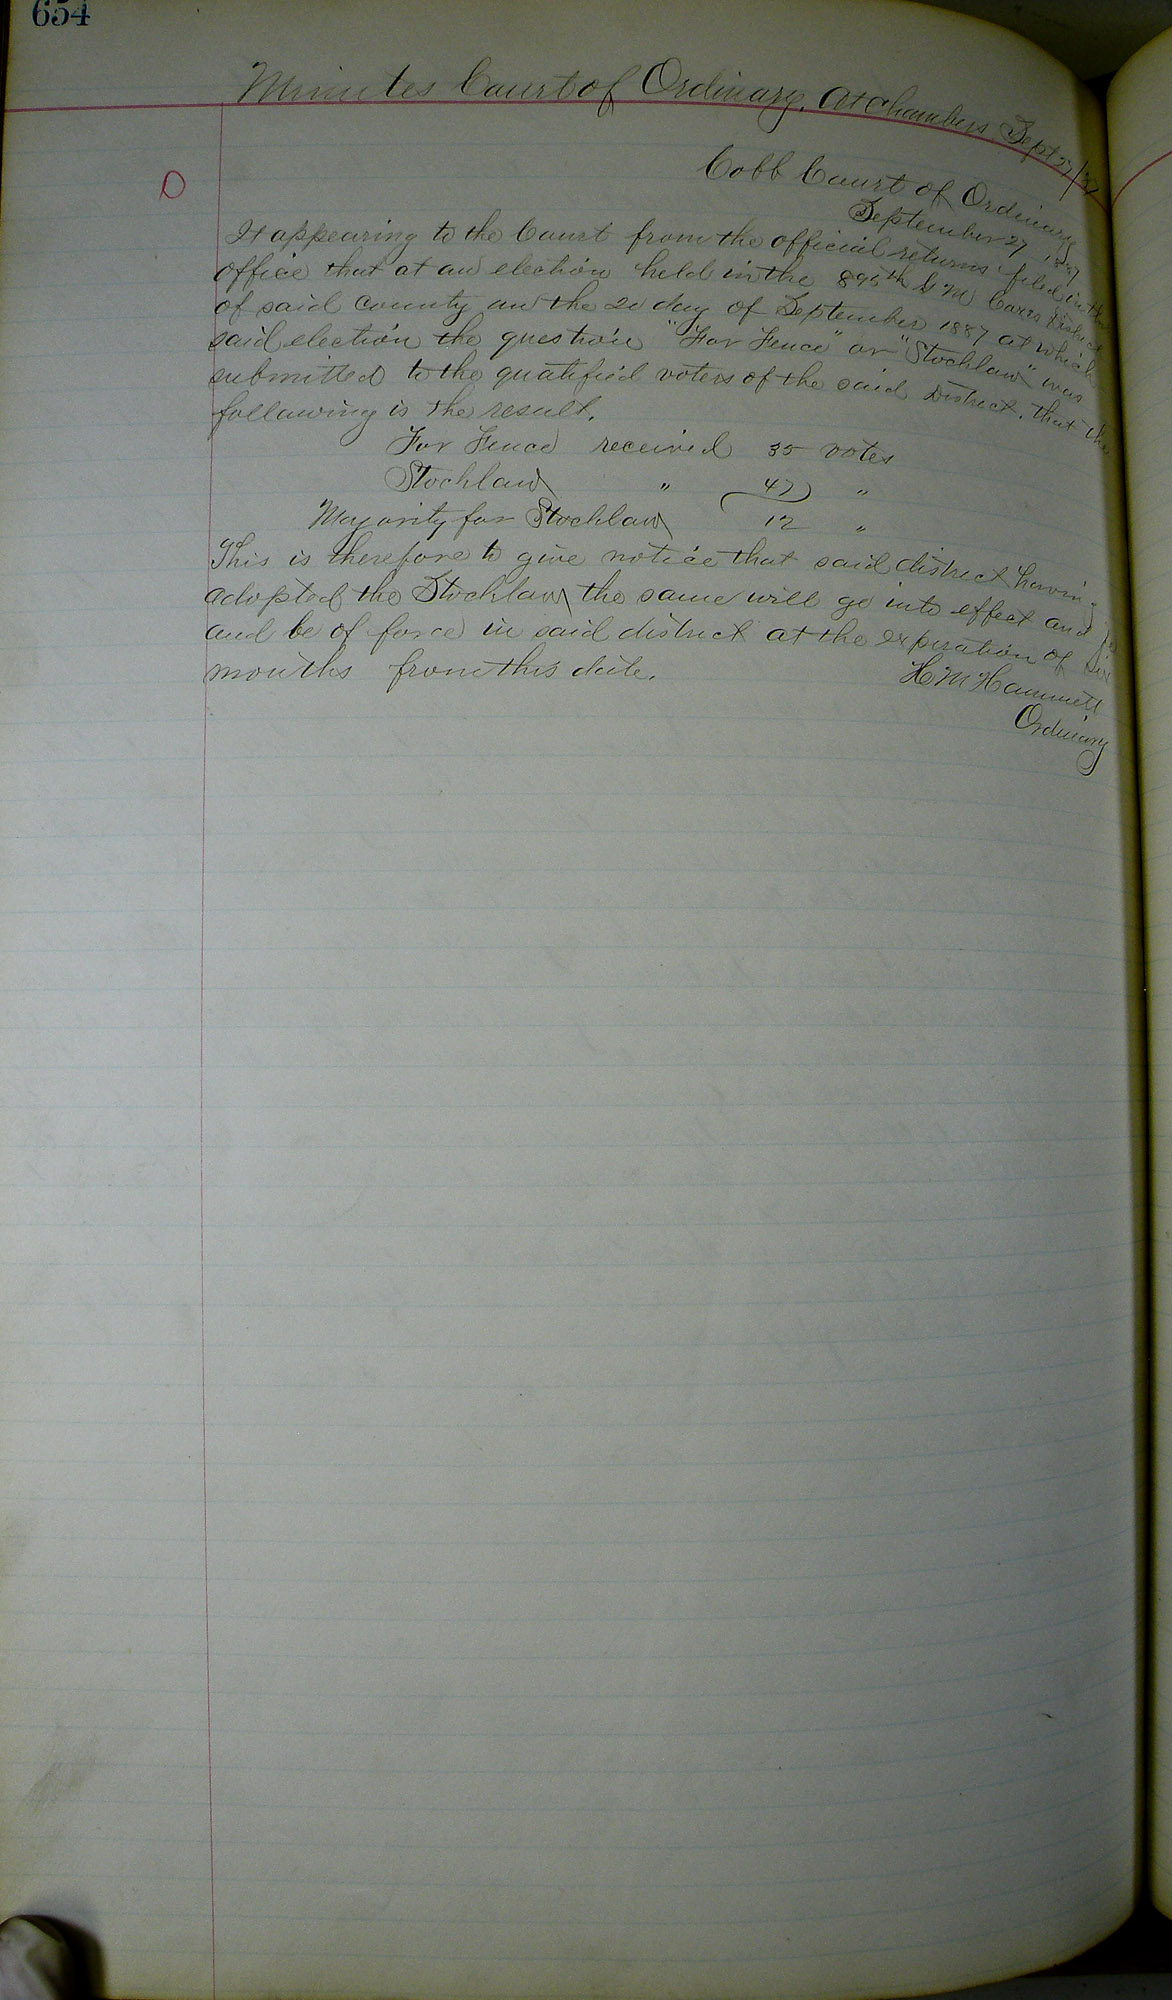 654
Minutes Court of Ordinary, At Chambers Sept 27/87
Cobb Court of Ordinary
September 27, 1887
O
It appearing to the Court from the official returns filed in this
office that at an election held in the 895th G M Coxes District
of said County on the 20 day of September 1887 at which
said election the question "For Fence" or "Stocklaw" was
submitted to the qualified voters of the said District, that the
following is the result.
For Fence received 35 votes
Stocklaw " 47 "
Majority for Stocklaw 12 "
This is therefore to give notice that said district having
adopted the Stocklaw the same will go into effect and
and be of force in said district at the expiration of Six
months from this date.
H M Hammett
Ordinary